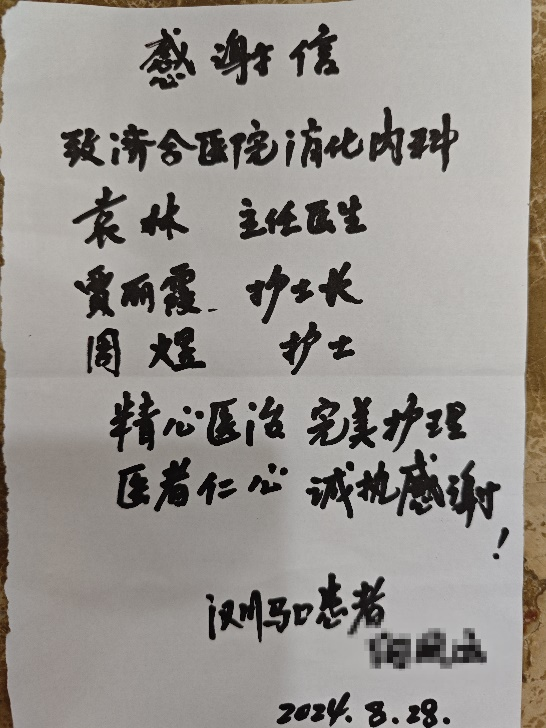 感谢信
致济合医院消化内科
袁林 主任医生
贾丽霞 护士长
周煜 护士
精心医治 完美护理
医者仁心 诚执感谢!
汉川马口患者
2024.8.28.